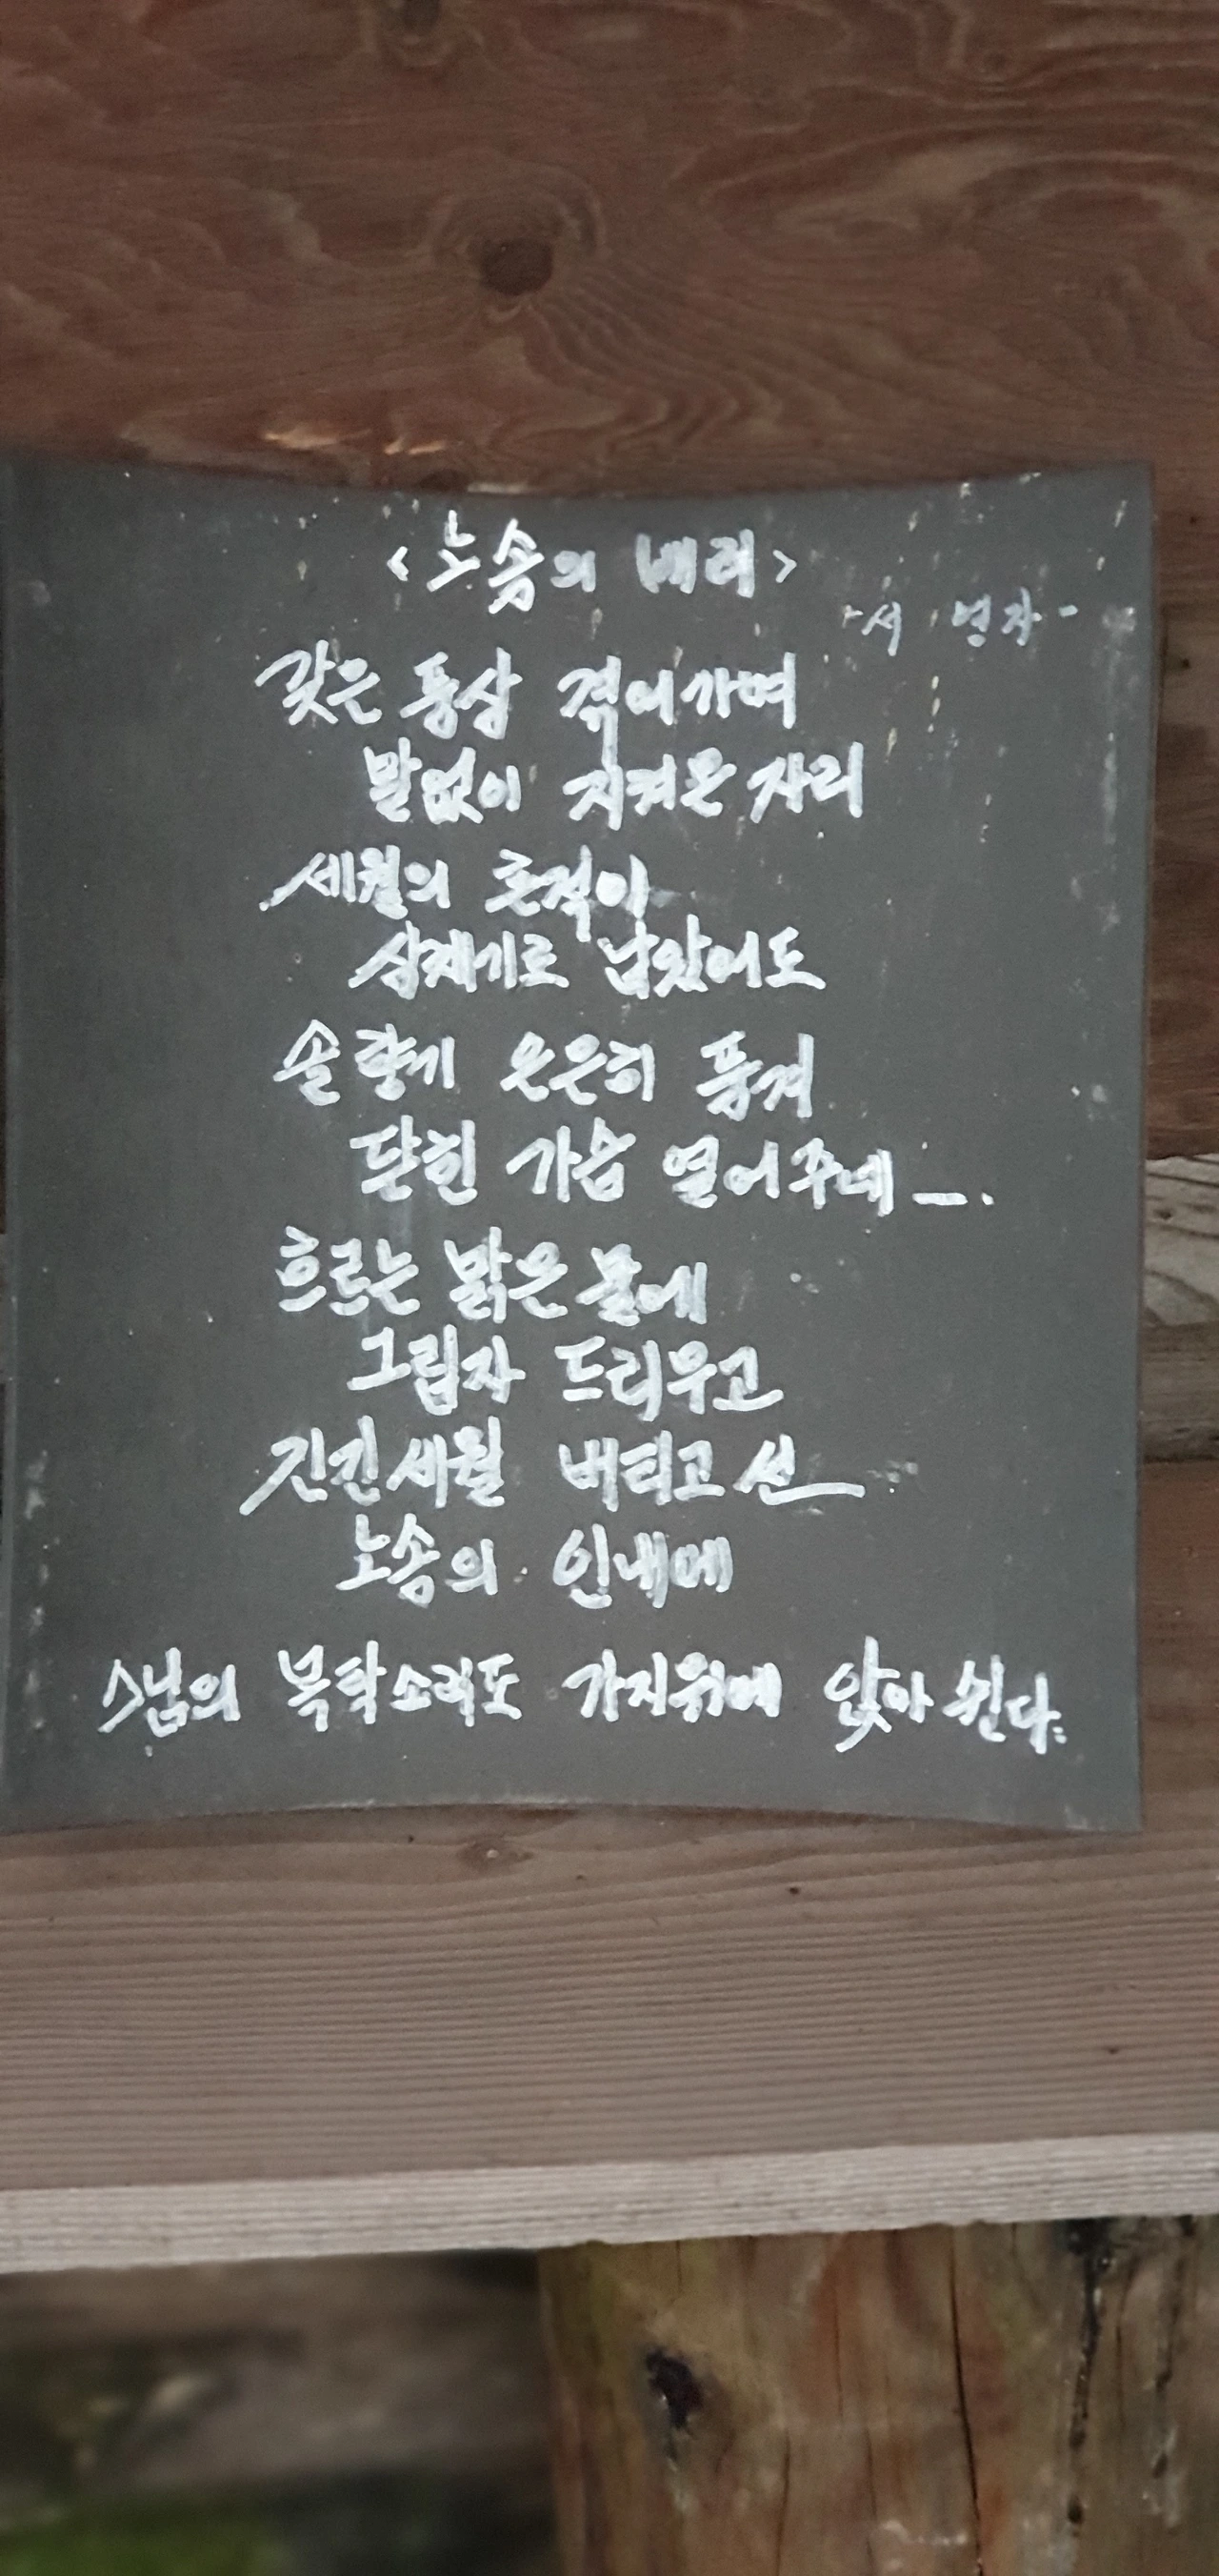 <노송의 배려>
-서 영자-
갖은 풍상 겪어가며
말없이 지켜온 자리
세월의 흔적이
상채기로 남았어도
솔향게 은은히 풍겨
닫힌 가슴 열어주네 —.
흐르는 맑은 물에
그림자 드리우고
긴긴세월 버티고 선
노송의 인내에
스님의 목탁소리도 가지위에 앉아 쉰다.